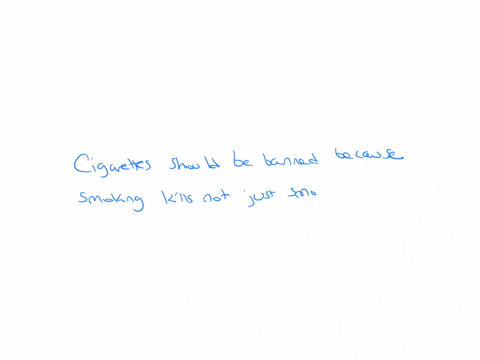 Cigarettes should be banned because
smoking kills not just smo